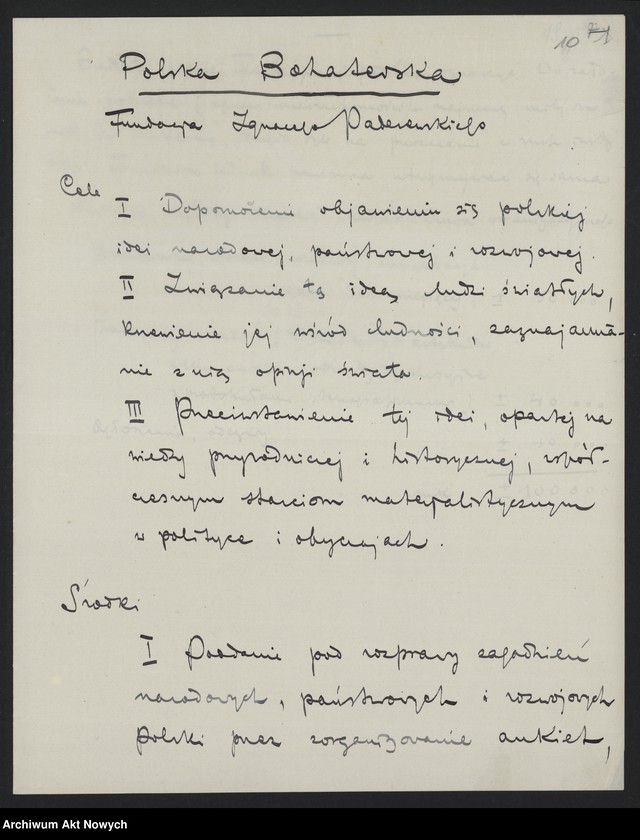 10
Polska Bohaterska
Fundacja Ignacego Paderewskiego
Cele
I Dopomożenie objawieniu się polskiej
idei narodowej, państwowej i rozwojowej.
II Związanie tą ideą ludzi światłych,
krzewienie jej wśród ludności, zaznajamia-
nie z nią opinji świata.
III Przeciwstawienie tej idei, opartej na
wiedzy przyrodniczej i historycznej, współ-
czesnym starciom materjalistycznym
w polityce i obyczajach.
Środki
I Poddanie pod rozprawy zagadnień
narodowych, państwowych i rozwojowych
Polski przez zorganizowanie ankiet,
Archiwum Akt Nowych